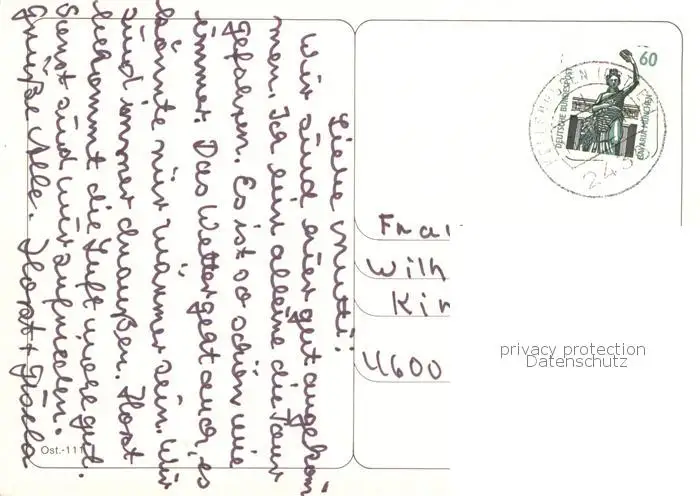 Liebe Mutti!
Wir sind hier gut angekom-
men. Ich bin alleine die Tour
gefahren. Es ist so schön wie
immer. Das Wetter geht auch, es
könnte nur wärmer sein. Wir
sind immer draußen. Horst
bekommt die Luft immer gut.
Sonst sind wir zufrieden.
Grüße Alle. Horst + Gisela
Ost.-111
60
DEUTSCHE BUNDESPOST
BAVARIA MÜNCHEN
243
Frau
Wilh
Kir
4600
privacy protection
Datenschutz